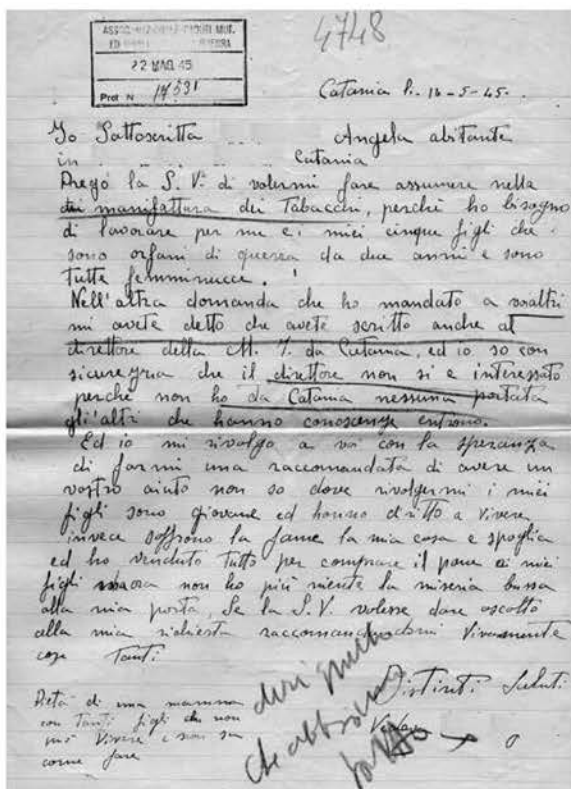 4748
22 MAG. 45
Prot. N 17531
Catania li. 16-5-45.
Io Sottoscritta Angela abitante
in Catania
Prego la S. V. di volermi fare assumere nella
manifattura dei Tabacchi, perchè ho bisogno
di lavorare per me e i miei cinque figli che
sono orfani di guerra da due anni e sono
tutte femminucce.
Nell'altra domanda che ho mandato a voialtri
mi avete detto che avete scritto anche al
direttore della M. T. da Catania, ed io so con
sicuregna che il direttore non si e interessato
perchè non ho da Catania nessuna portata
gli'altri che hanno conoscenze entrono.
Ed io mi rivolgo a voi con la speranza
di farmi una raccomandata di avere un
vostro aiuto non so dove rivolgermi i miei
figli sono giovane ed hanno diritto a vivere
invece soffrono la fame la mia casa e spoglia
ed ho venduto tutto per comprare il pane ai miei
figli ora non ho più niente la miseria bussa
alla mia porta, Se la S. V. volesse dare ascolto
alla mia richiesta raccomandandomi Vivamente
cose Tanti
Distinti Saluti
Pietà di una mamma
con Tanti figli che non
può Vivere e non sa
come fare
che abbiamo
fatto